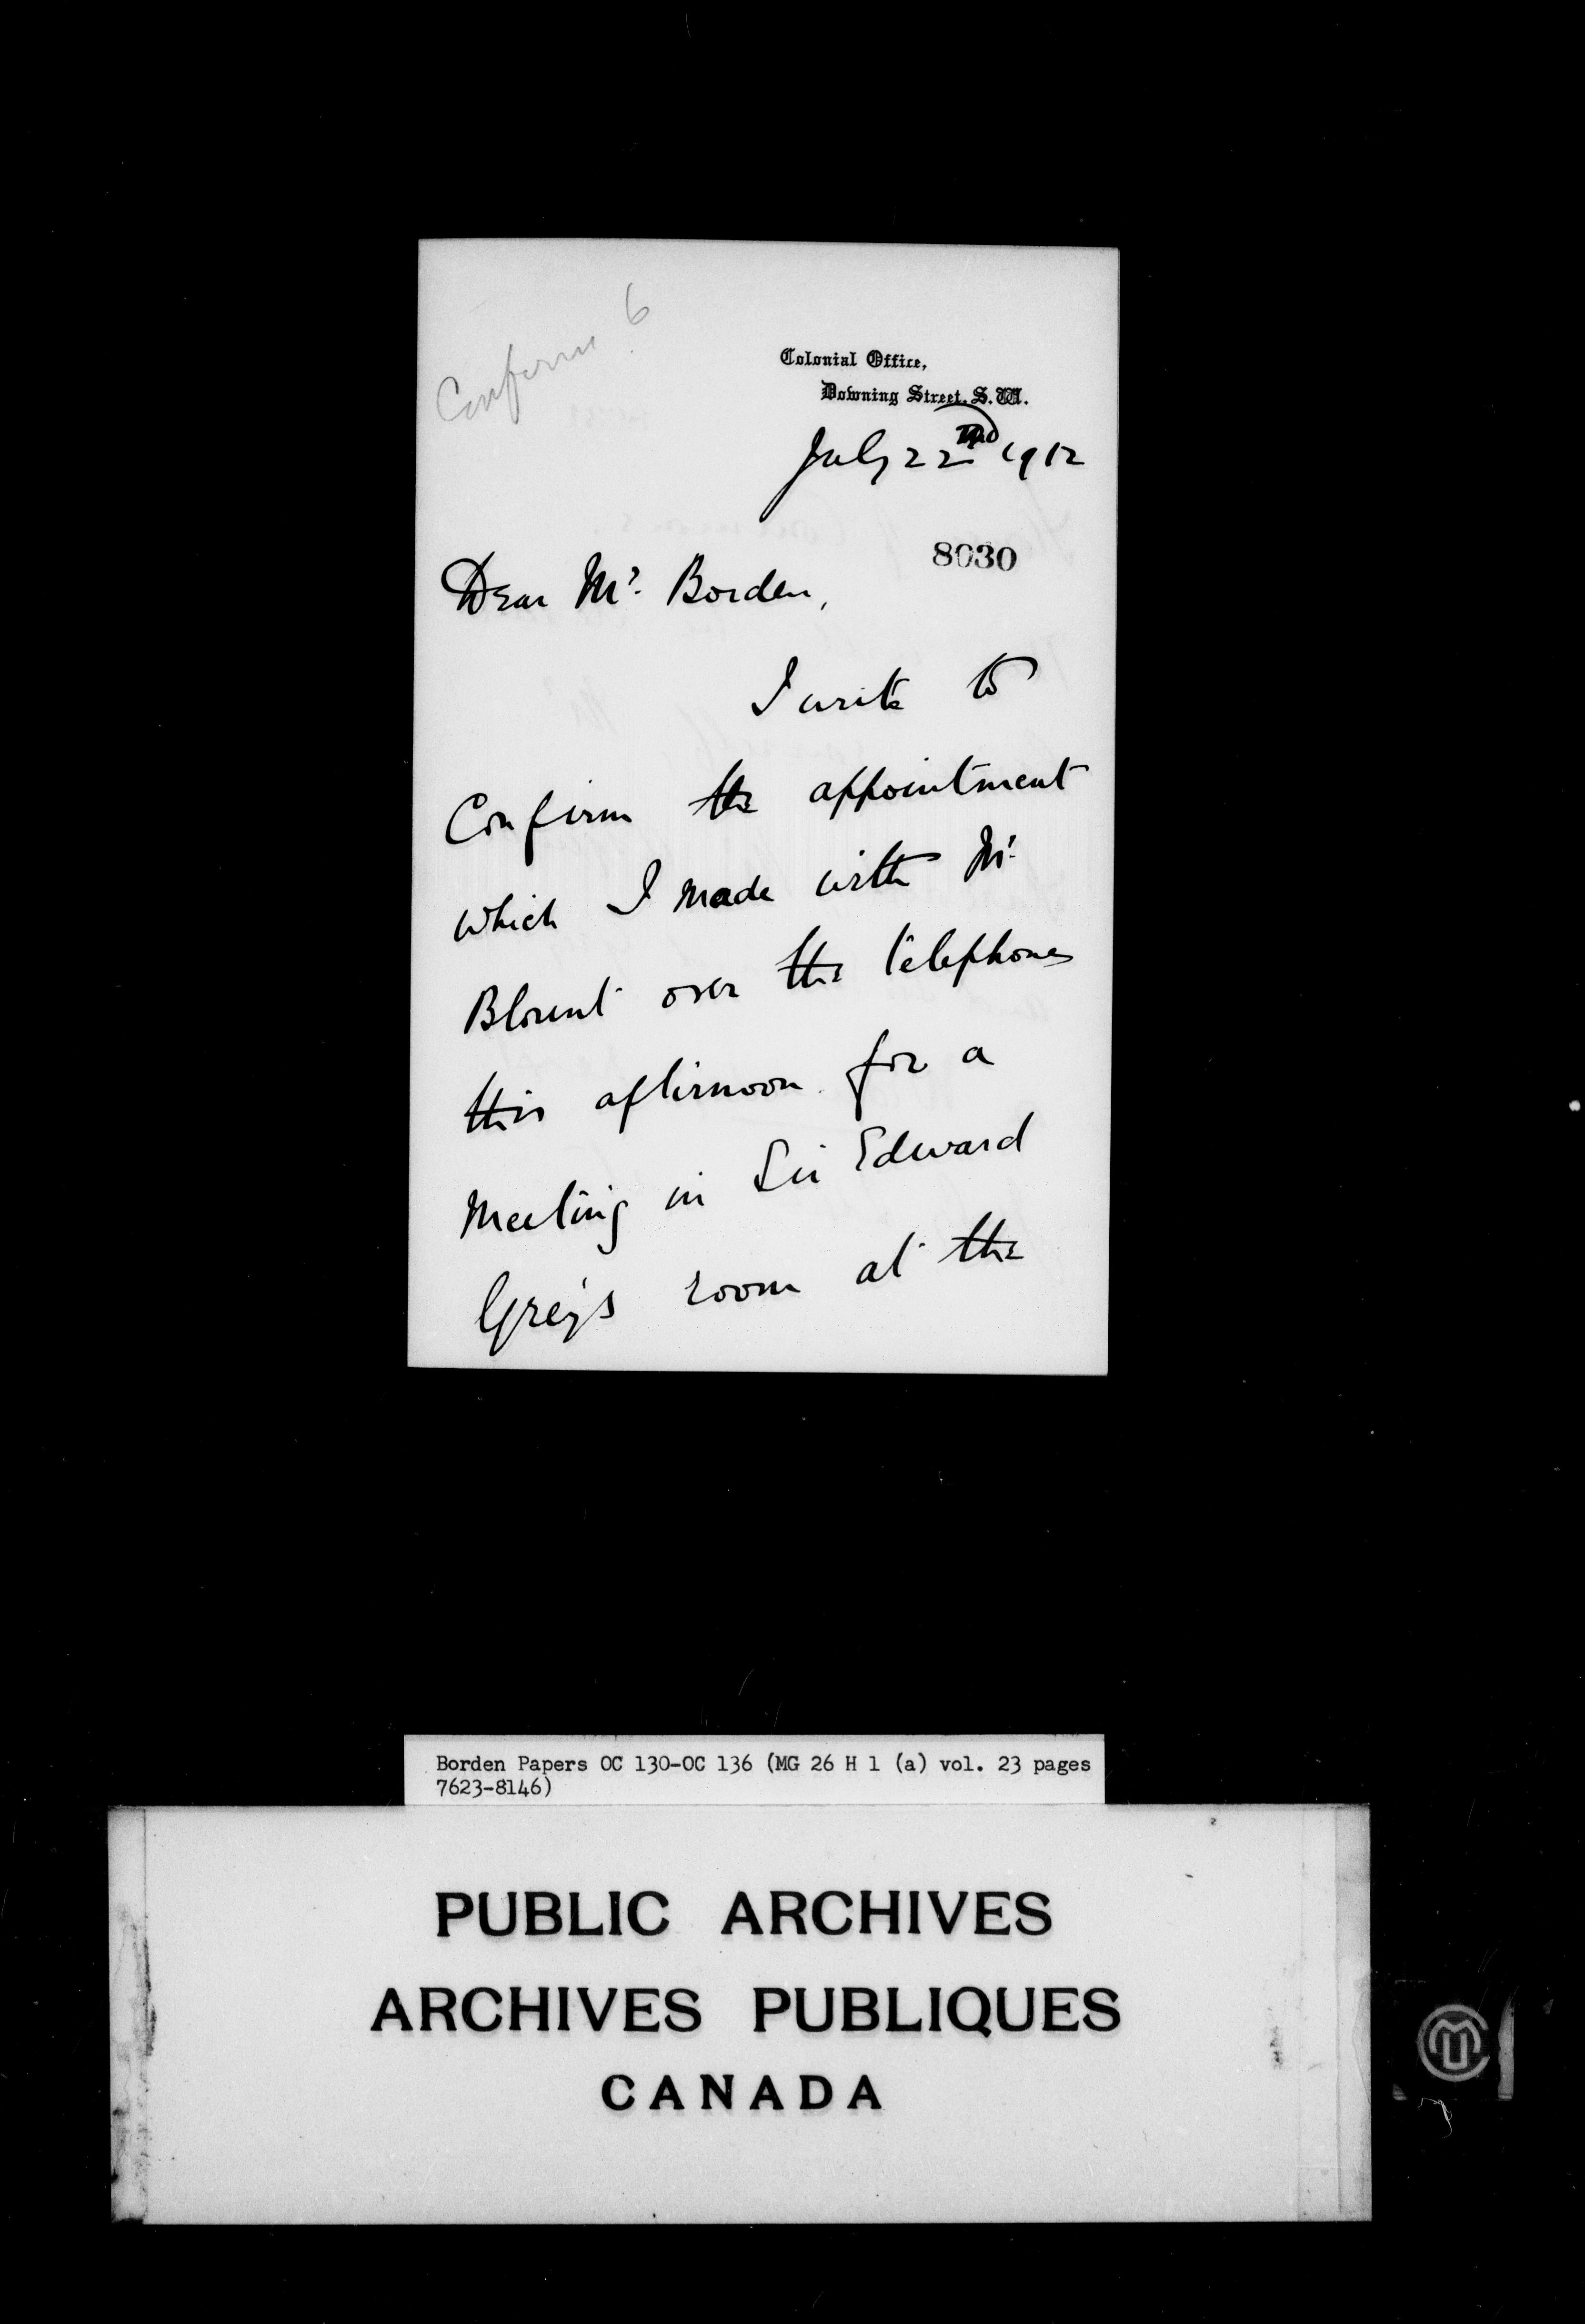 Confirm 6
Colonial Office,
Downing Street, S.W.
July 22nd 1912
8030
Dear Mr. Borden,
I write to
Confirm the appointment
which I made with Mr.
Blount over the telephone
this afternoon for a
Meeting in Sir Edward
Grey's room at the
Borden Papers OC 130-OC 136 (MG 26 H 1 (a) vol. 23 pages
7623-8146)
PUBLIC ARCHIVES
ARCHIVES PUBLIQUES
CANADA